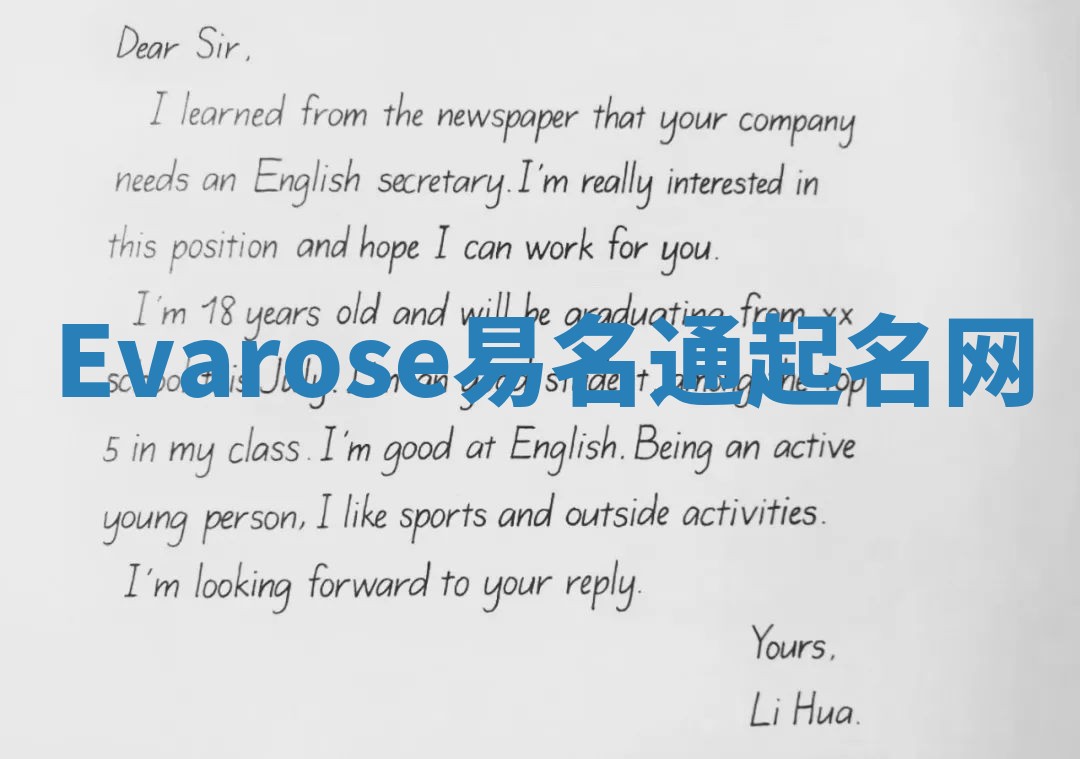 Dear Sir,
I learned from the newspaper that your company
needs an English secretary. I'm really interested in
this position and hope I can work for you.
I'm 18 years old and will be graduating from xx
Evarose易名通起名网
school this July. I'm an good student, among the top
5 in my class. I'm good at English. Being an active
young person, I like sports and outside activities.
I'm looking forward to your reply.
Yours,
Li Hua.